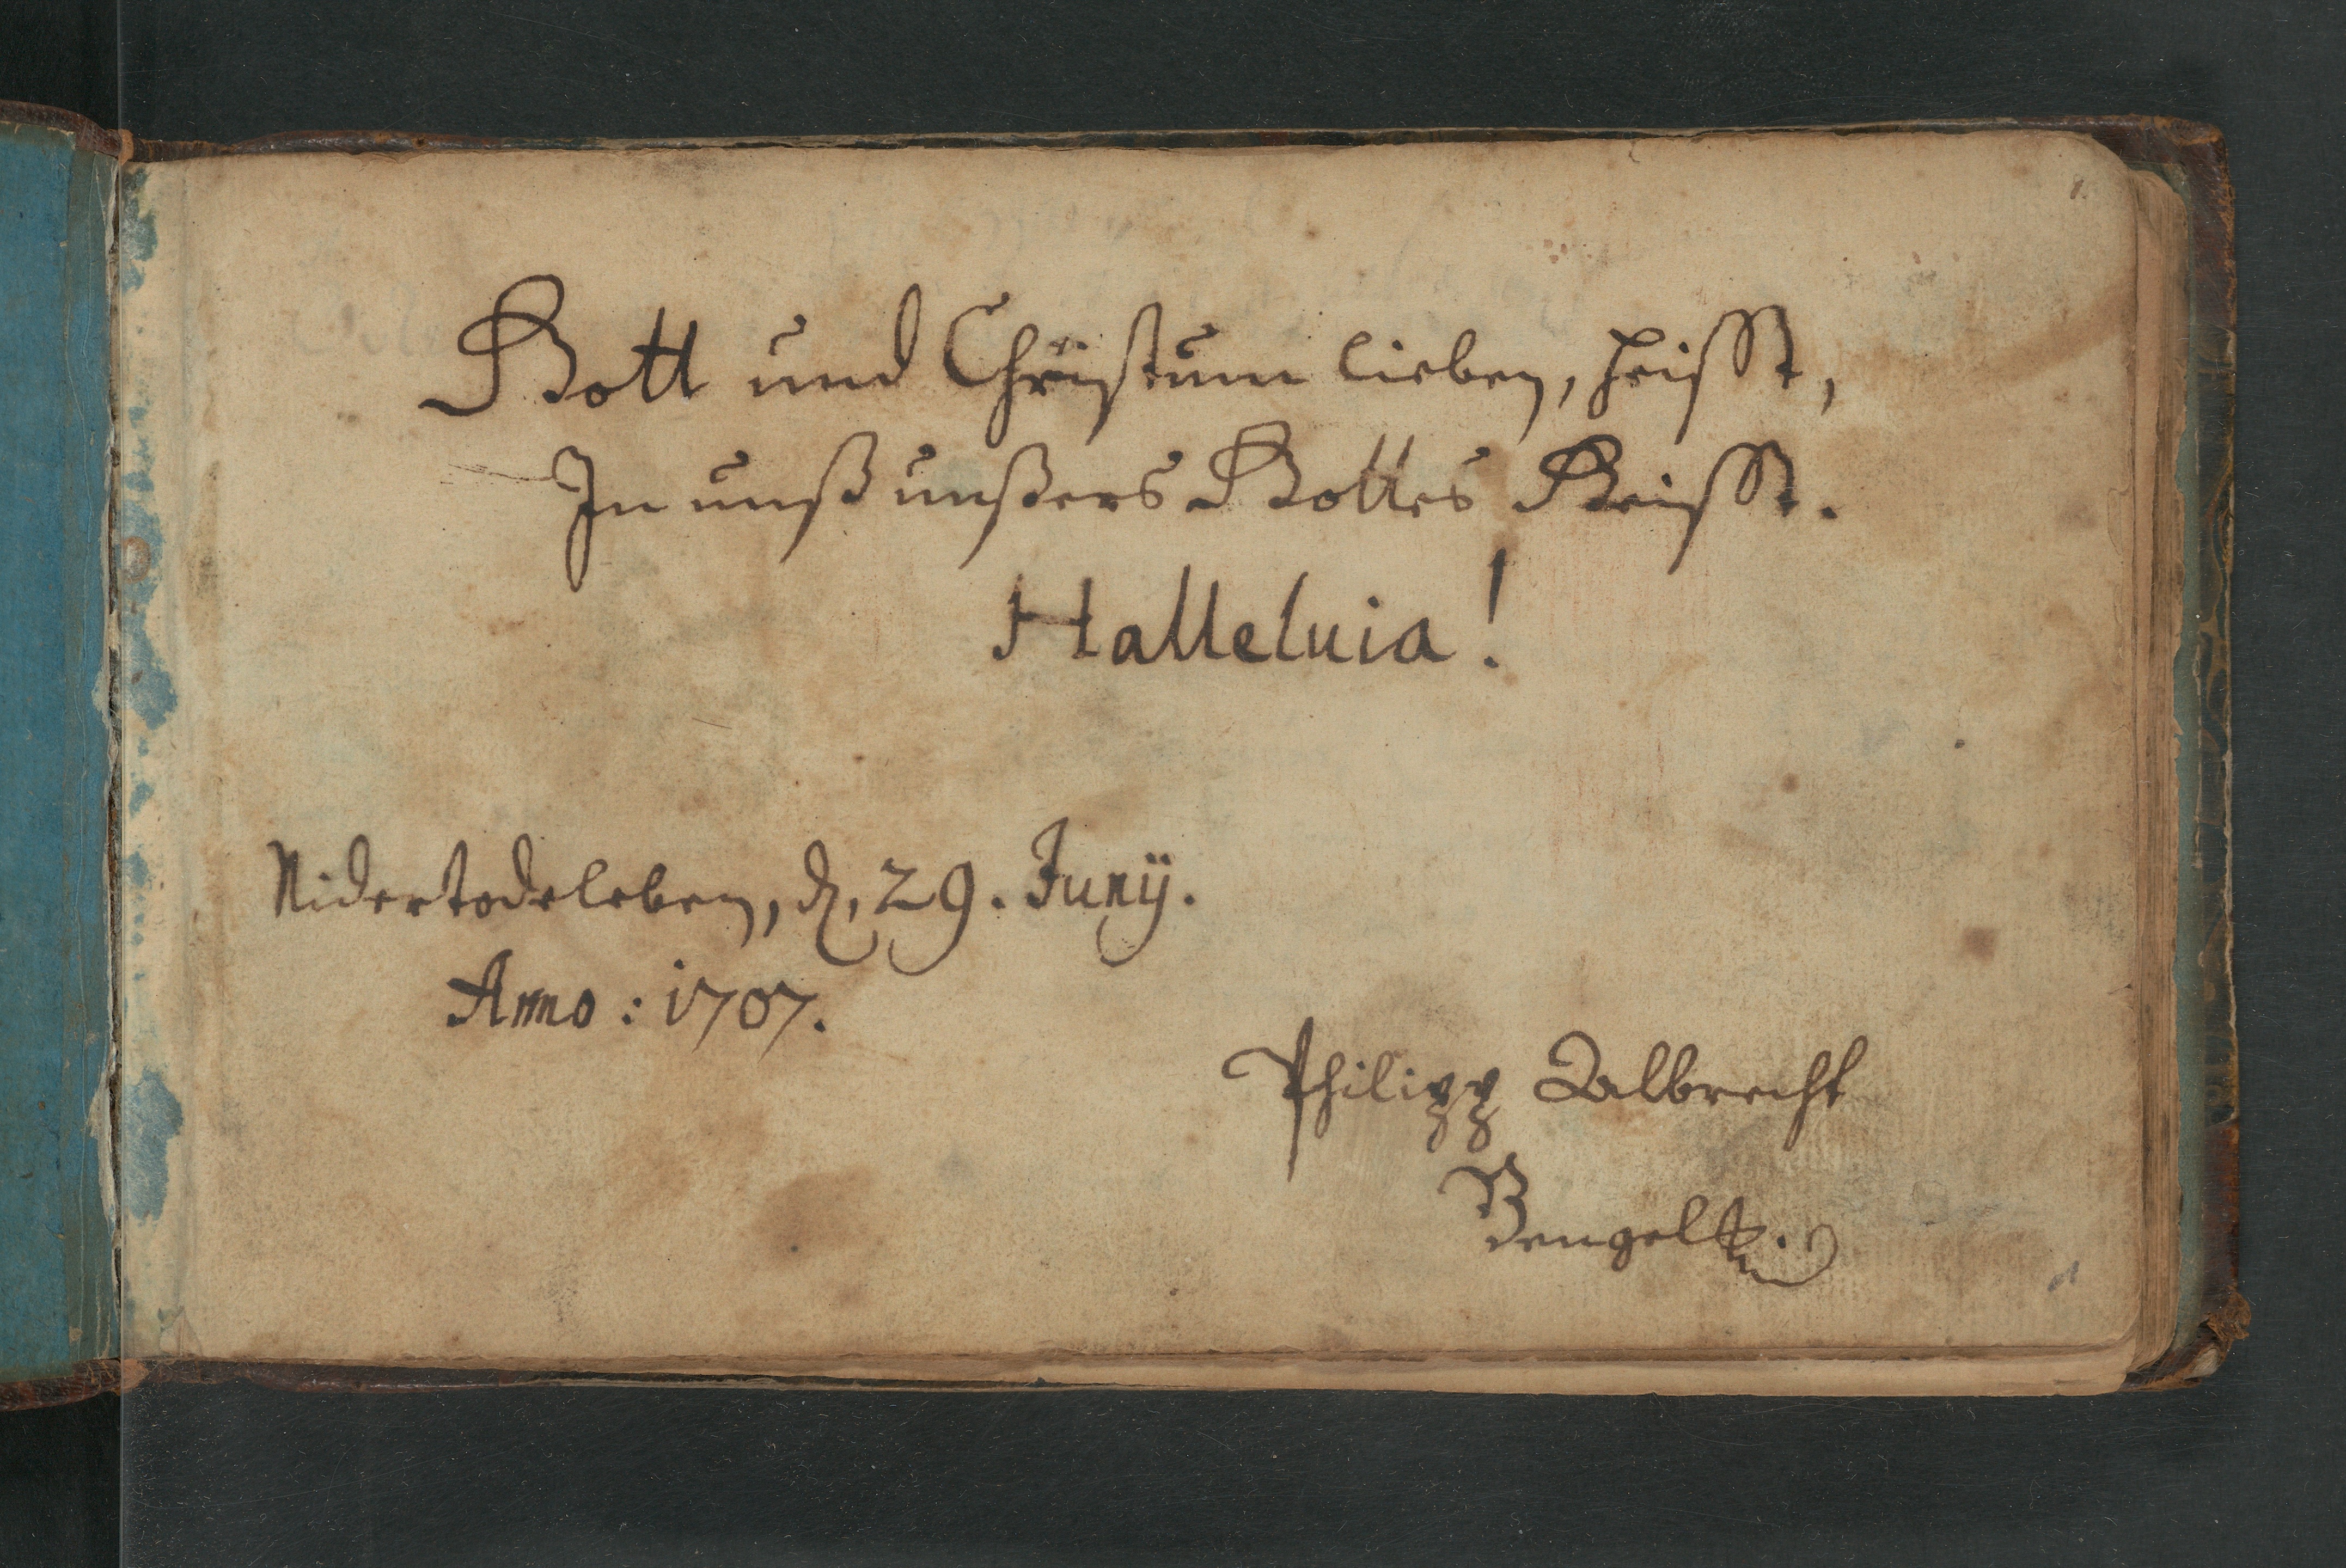 1.
Gott und Christum lieben, heisst,
In unß unßers Gottes Geisst.
Halleluia!
Nidertodeleben, d. 29. Junÿ.
Anno: 1707.
Philipp Albrecht